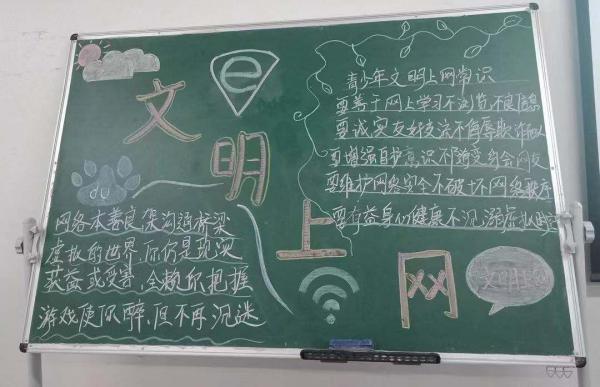 文
明
上
网
e
du
网络本善良,架沟通桥梁
虚拟的世界,你仍是现实
获益或受害,全赖你把握
游戏使你醉,但不再沉迷
青少年文明上网常识
要善于网上学习不浏览不良信息
要诚实友好交流不侮辱欺诈他人
要增强自护意识不随意约会网友
要维护网络安全不破坏网络秩序
要有益身心健康不沉溺虚拟时空
文明上网